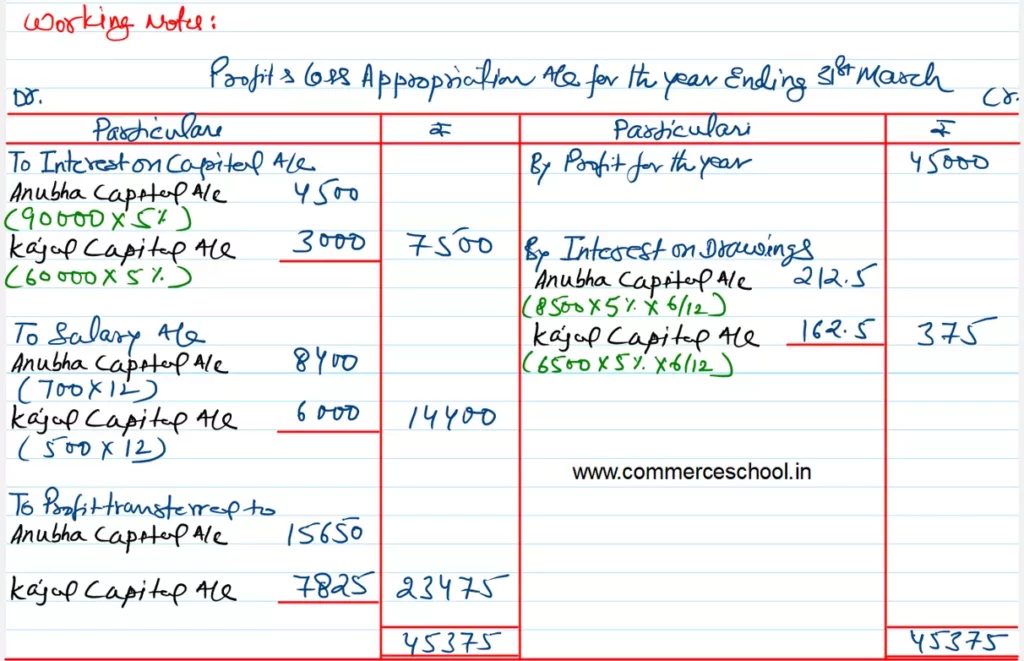 Working Note:
Profit & Loss Appropriation A/c for the year Ending 31st March
Dr. Cr.
Particulars ₹ Particulars ₹
To Interest on Capital A/c By Profit for the year 45000
Anubha Capital A/c 4500
(90000 x 5%)
Kajal Capital A/c 3000 7500 By Interest on Drawings
(60000 x 5%) Anubha Capital A/c 212.5
(8500 x 5% x 6/12)
To Salary A/c Kajal Capital A/c 162.5 375
Anubha Capital A/c 8400 (6500 x 5% x 6/12)
(700 x 12)
Kajal Capital A/c 6000 14400
(500 x 12)
www.commerceschool.in
To Profit transferred to
Anubha Capital A/c 15650
Kajal Capital A/c 7825 23475
45375 45375